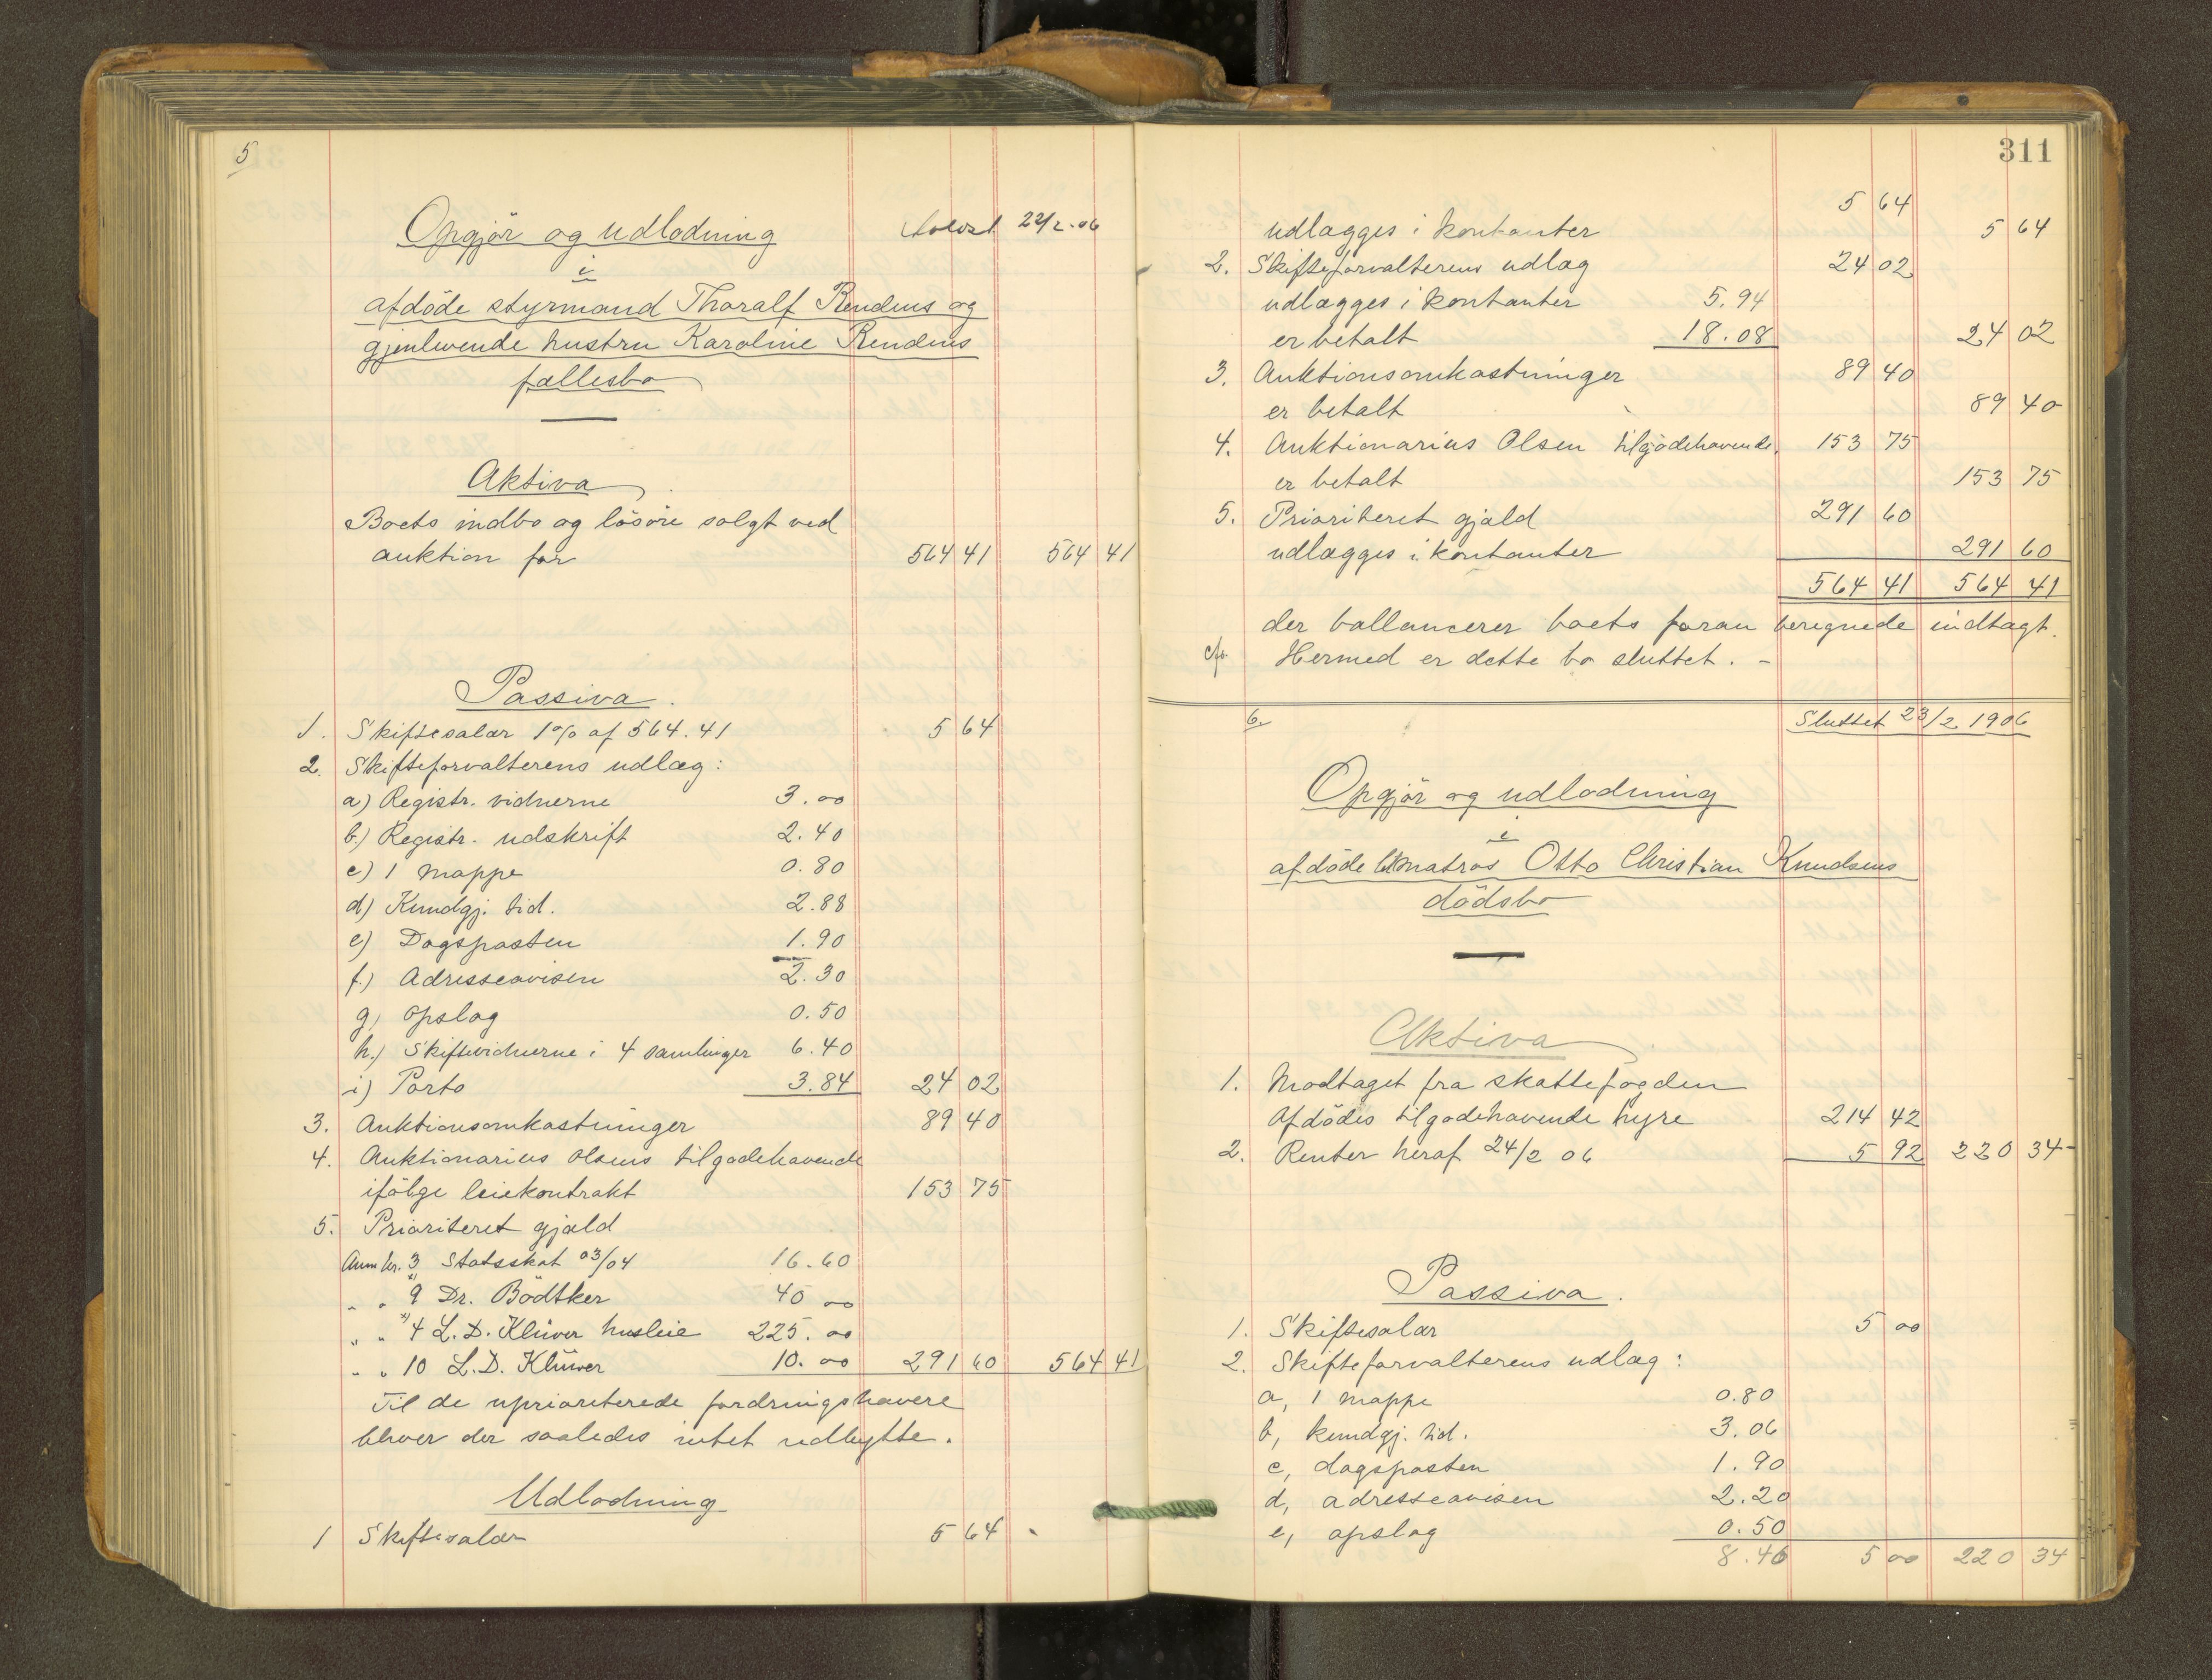 5
Opgjör og udlodning 22/2.06
i
afdöde styrmand Tharalf Rendens og
gjenlevende hustru Karoline Rendens
fællesbo
Aktiva
Boets indbo og lösöre solgt ved
auktion for 564 41 564 41
Passiva.
1. Skiftesalær 1% af 564.41 5 64
2. Skifteforvalterens udlæg:
a) Registr. vidnerne 3.00
b.) Registr. udskrift 2.40
c) 1 mappe 0.80
d) Kundgj. tid. 2.88
e) Dagsposten 1.90
f.) Adresseavisen 2.30
g) opslag 0.50
h.) Skiftevidnerne i 4 samlinger 6.40
i) Porto 3.84 24 02
3. Auktionsomkostninger 89 40
4. Auktionarius Olsens tilgodehavende
ifölge leiekontrakt 153 75
5. Prioriteret gjæld
Anm kr. 3 Statsskat 03/04 16.60
" " 9 Dr. Bödtker 40 00
" " 4 L.D. Klüwer husleie 225.00
" " 10 L.D. Klüwer 10.00 291 60 564 41
Til de uprioriterede fordringshavere
bliver der saaledes intet udbytte.
Udlodning
1 Skiftesalær 5 64
311
5 64
udlægges i kontanter 5 64
2. Skifteforvalterens udlæg 24 02
udlægges i kontanter 5.94
er betalt 18.08 24 02
3. Auktionsomkostninger 89 40
er betalt 89 40
4. Auktionarius Olsen tilgodehavende. 153 75
er betalt 153 75
5. Prioriteret gjæld 291 60
udlægges i kontanter 291 60
564 41 564 41
der ballancerer boets foran beregnede indtægt.
Hermed er dette bo sluttet. -
6. Sluttet 23/2 1906
Opgjör og udlodning
i
afdöde matros Otto Christian Knudsens
dödsbo
Aktiva
1. Modtaget fra skattefogden
Afdödes tilgodehavende hyre 214 42
2. Renter heraf 24/2 06 5 92 220 34
Passiva.
1. Skiftesalær 5 00
2. Skifteforvalterens udlæg:
a, 1 mappe 0.80
b, kundgj. tid. 3.06
c, dagsposten 1.90
d, adresseavisen 2.20
e, opslag 0.50
8.46 5 00 220 34